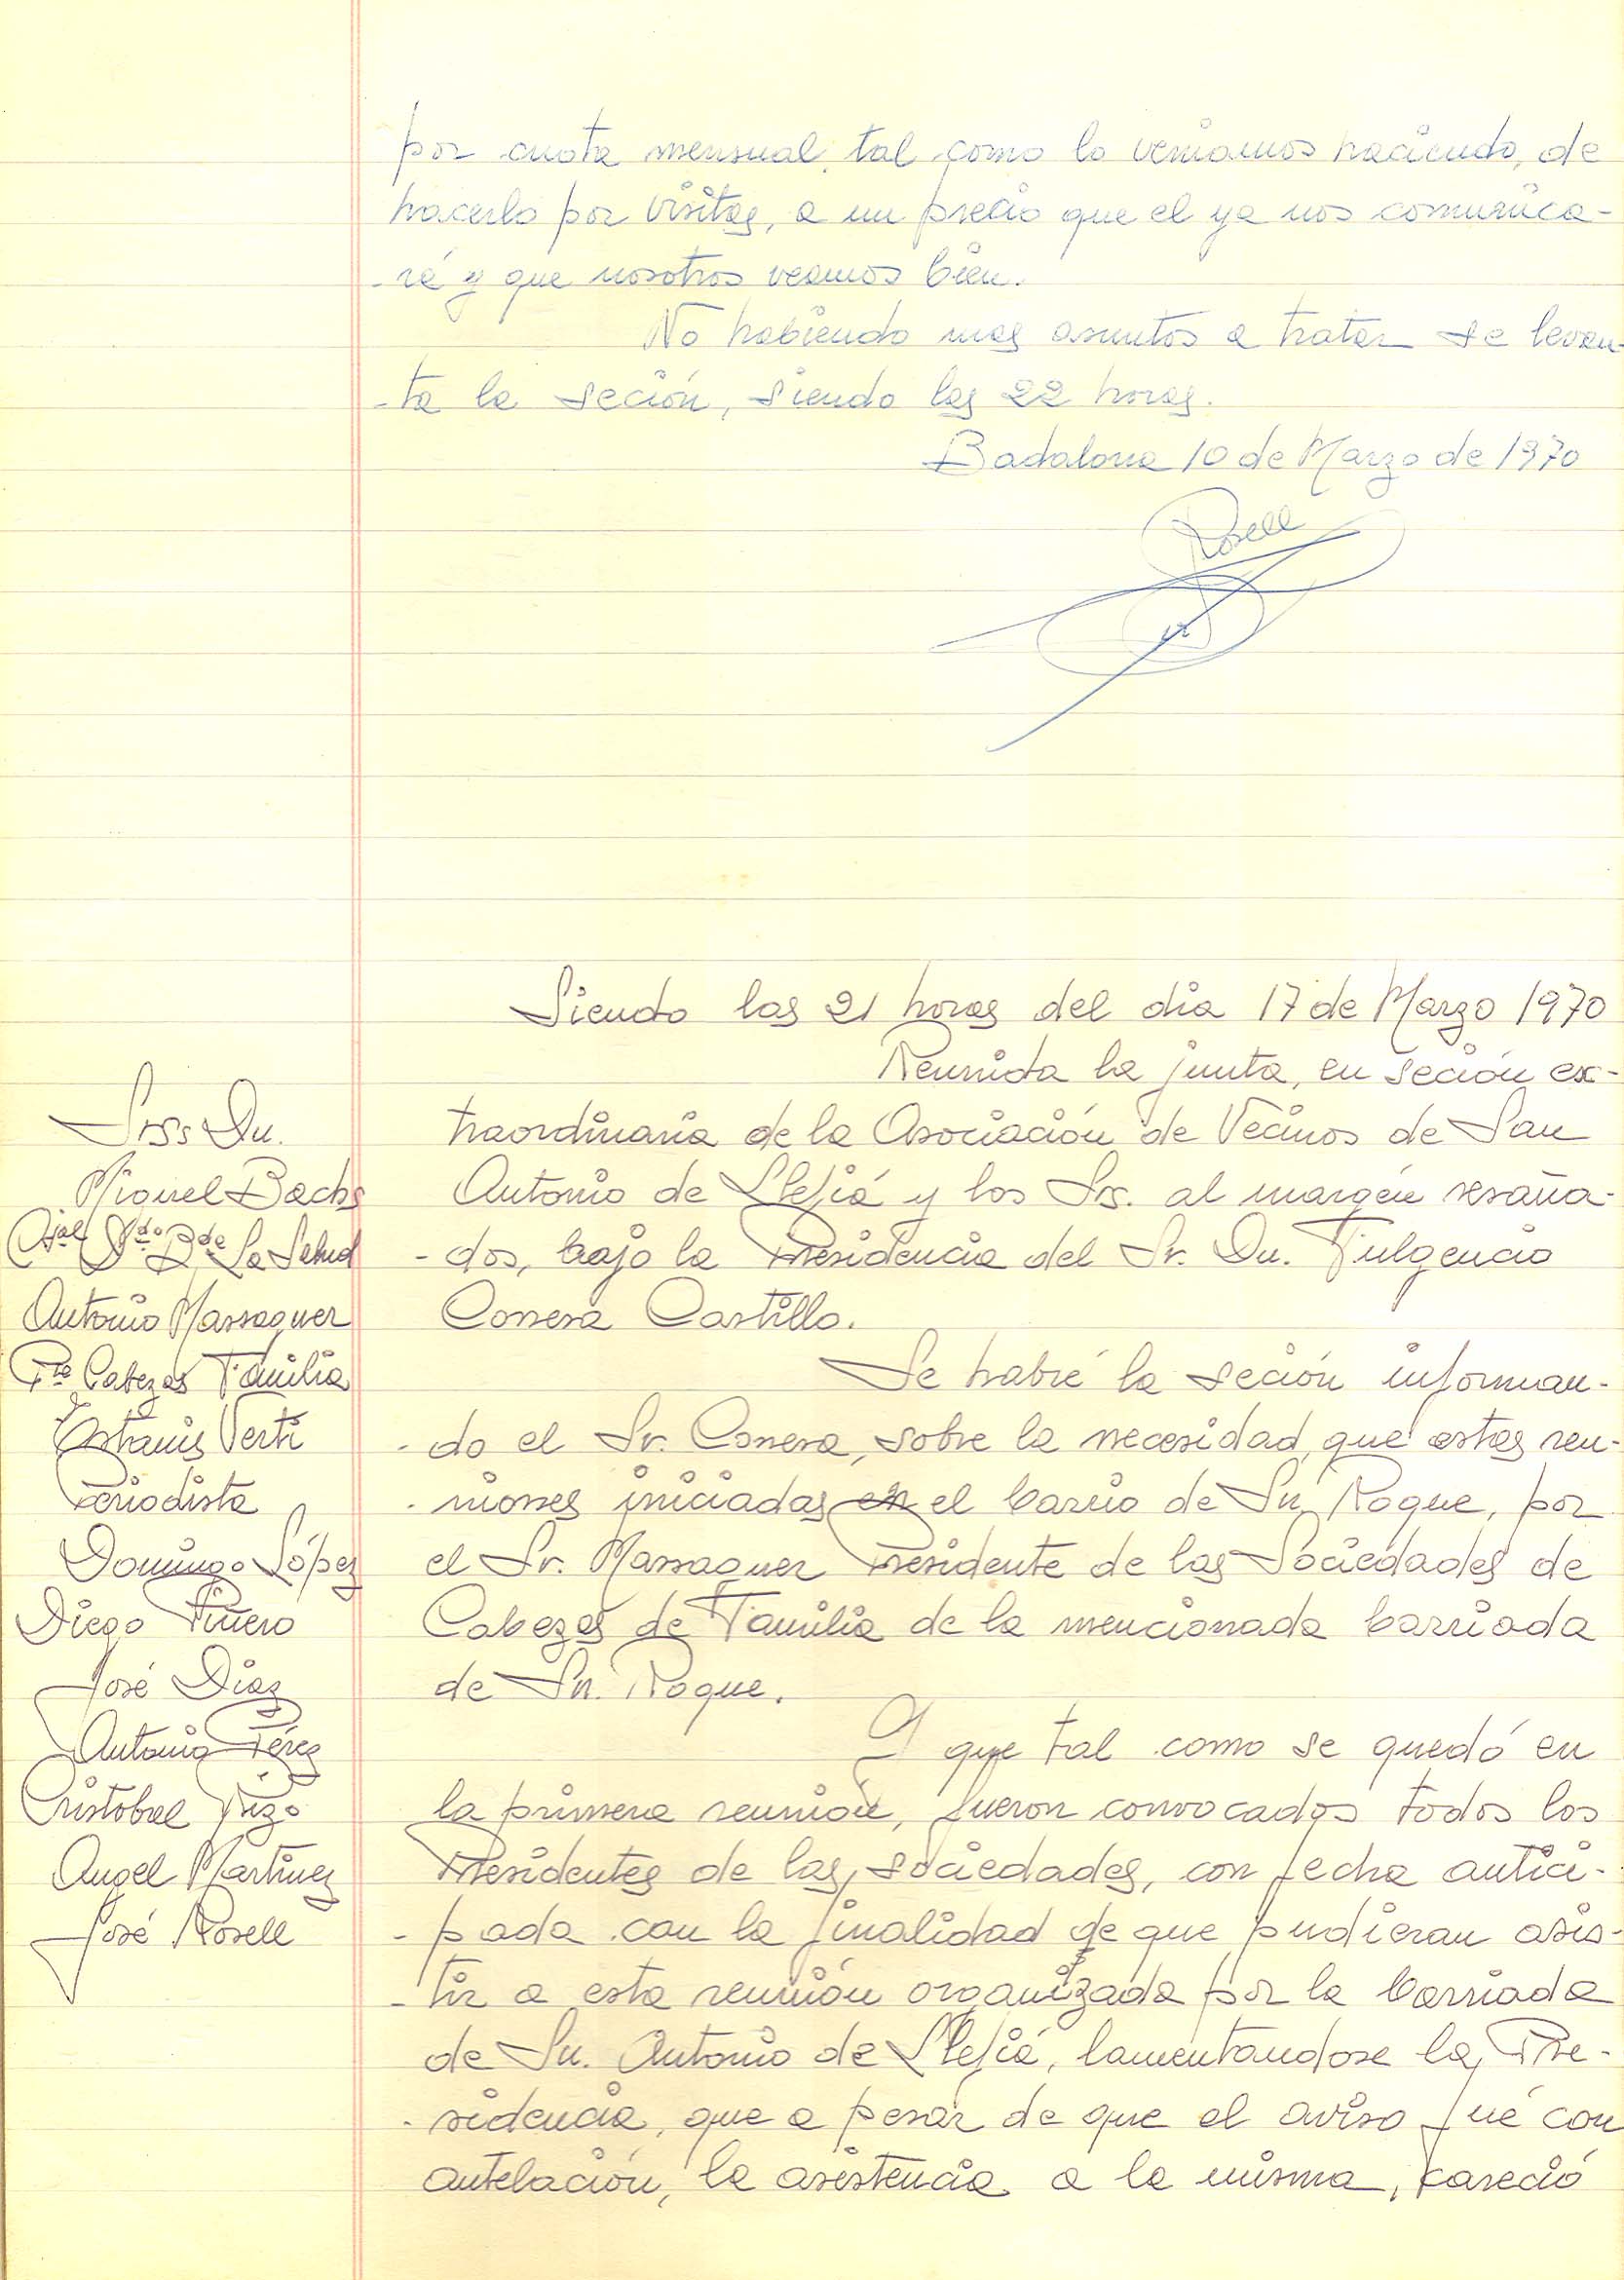 por cuota mensual, tal como lo veniamos haciendo, de
hacerlo por visitas, a un precio que el ya nos comunica-
-rá y que nosotros veamos bien.
No habiendo mas asuntos a tratar se levan-
-ta la seción, siendo las 22 horas.
Badalona 10 de Marzo de 1970
Rosell
Siendo las 21 horas del dia 17 de Marzo 1970
Reunida la junta, en seción ex-
traordinaria de la Asociación de Vecinos de San
Antonio de Llefiá y los Srs. al margén resaña-
-dos, bajo la Presidencia del Sr. Dn. Fulgencio
Conesa Castillo.
Se habré la seción informan-
-do el Sr. Conesa, sobre la necesidad, que estas reu-
-niones iniciadas en el barrio de Sn. Roque, por
el Sr. Massaguer Presidente de las Sociedades de
Cabezas de Familia de la mencionada barriada
de Sn. Roque.
Y que tal como se quedó en
la primera reunión, fueron convocados todos los
Presidentes de las sociedades, con fecha antici-
-pada con la finalidad de que pudieran asis-
-tir a esta reunión organizada por la barriada
de Sn. Antonio de Llefiá, lamentandose la Pre-
-sidencia, que a pesar de que el aviso fué con
antelación, la asistencia a la misma, careció
Srss Dn.
Miguel Bachs
La Salud
Antonio Massaguer
Pte Cabezas Familia
Estanis Verti
Periodista
Domingo López
Diego Piñero
José Diaz
Antonio Pérez
Cristobal
Angel Martinez
José Rosell